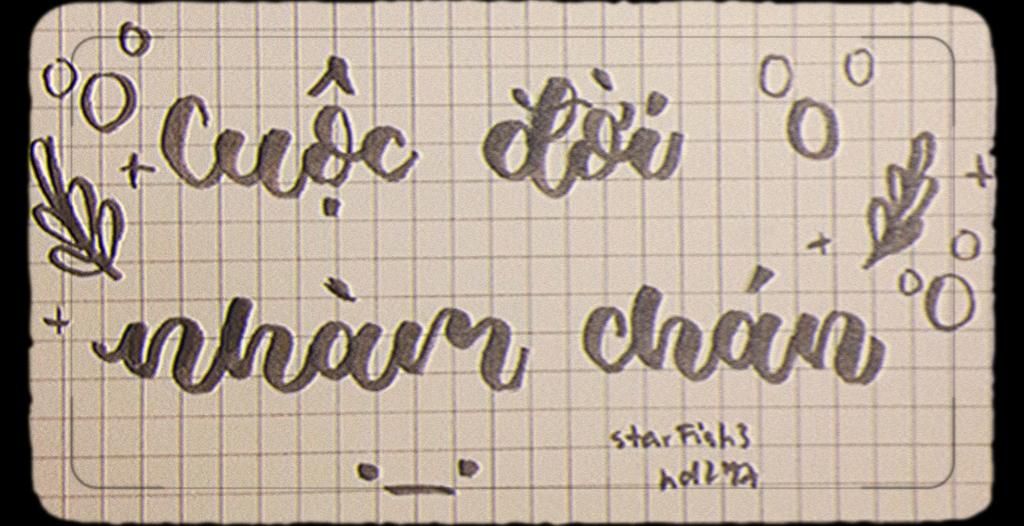 Cuộc đời
nhàm chán
starFish3